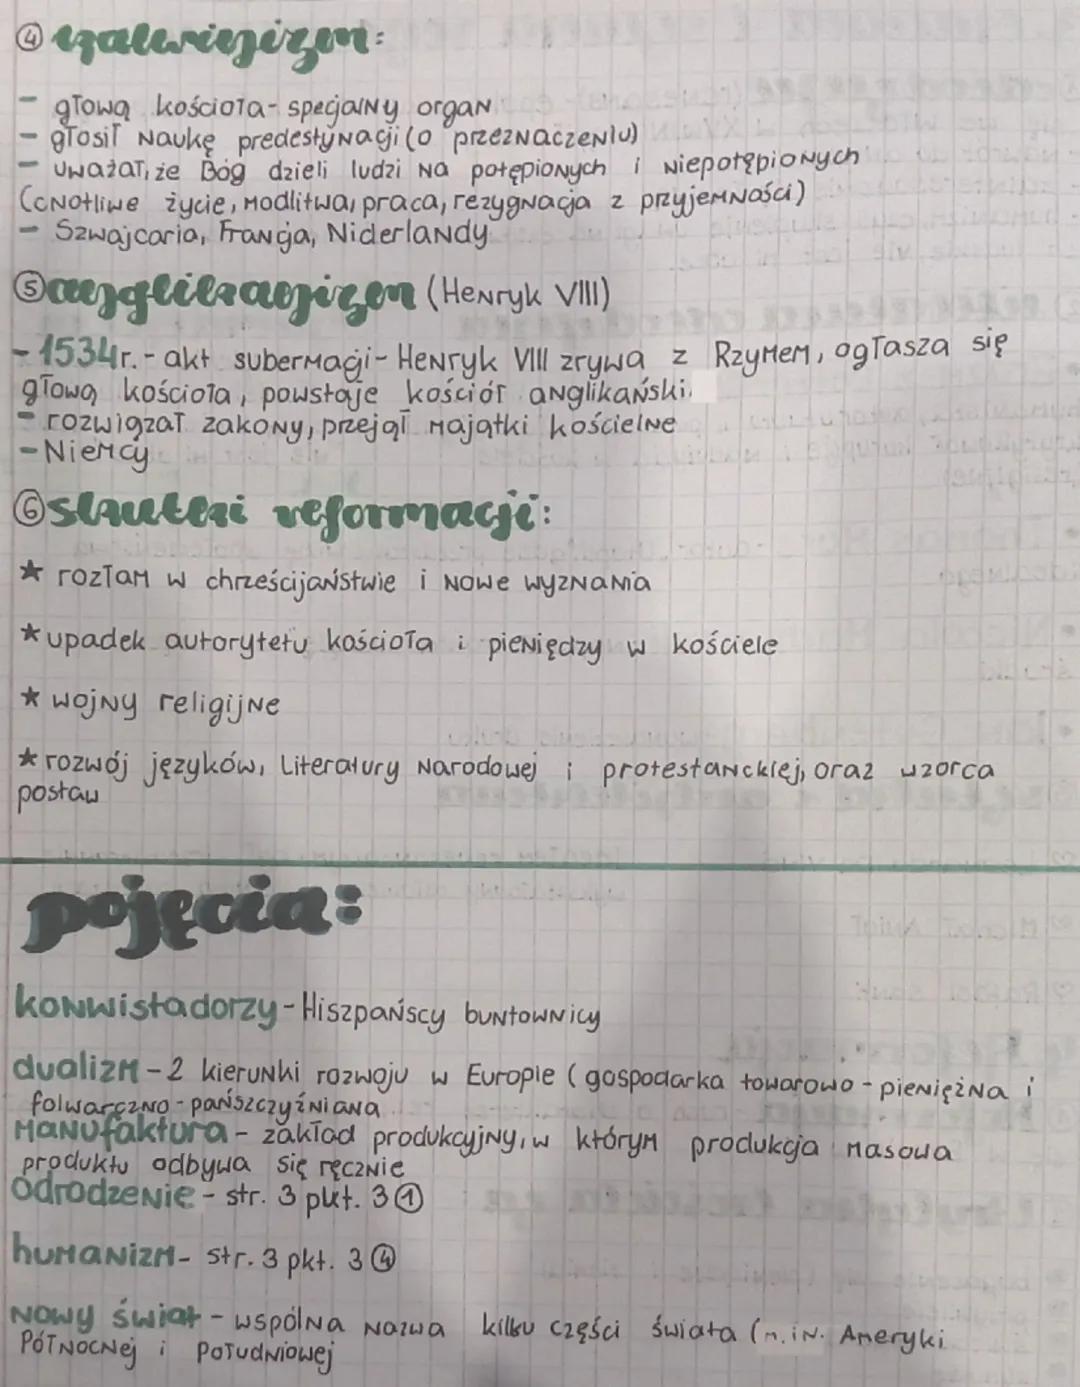 ④ kalwinizm:
- głową kościoła - specjalny organ
- głosił naukę predestynacji (o przeznaczeniu)
- uważał, że Bóg dzieli ludzi na potępionych i niepotępionych
(cnotliwe życie, modlitwa, praca, rezygnacja z przyjemności)
- Szwajcaria, Francja, Niderlandy
⑤ anglikanizm (Henryk VIII)
- 1534r. - akt subermacji - Henryk VIII zrywa z Rzymem, ogłasza się
głową kościoła, powstaje kościół anglikański.
- rozwiązał zakony, przejął majątki kościelne
- Niemcy
⑥ skutki reformacji:
* rozłam w chrześcijaństwie i nowe wyznania
* upadek autorytetu kościoła i pieniędzy w kościele
* wojny religijne
* rozwój języków, literatury narodowej i protestanckiej, oraz wzorca
postaw
pojęcia:
konwistadorzy - Hiszpańscy buntownicy
dualizm - 2 kierunki rozwoju w Europie (gospodarka towarowo - pieniężna i
folwarczno - pańszczyźniana
Manufaktura - zakład produkcyjny, w którym produkcja masowa
produktu odbywa się ręcznie
odrodzenie - str. 3 pkt. 3 ①
humanizm - str. 3 pkt. 3 ④
Nowy świat - wspólna nazwa kilku części świata (m.in. Ameryki
Północnej i Południowej